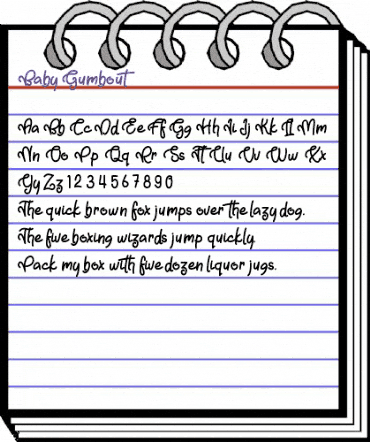 Baby Gumbout
Aa Bb Cc Dd Ee Ff Gg Hh Ii Jj Kk Ll Mm
Nn Oo Pp Qq Rr Ss Tt Uu Vv Ww Xx
Yy Zz 1 2 3 4 5 6 7 8 9 0
The quick brown fox jumps over the lazy dog.
The five boxing wizards jump quickly.
Pack my box with five dozen liquor jugs.